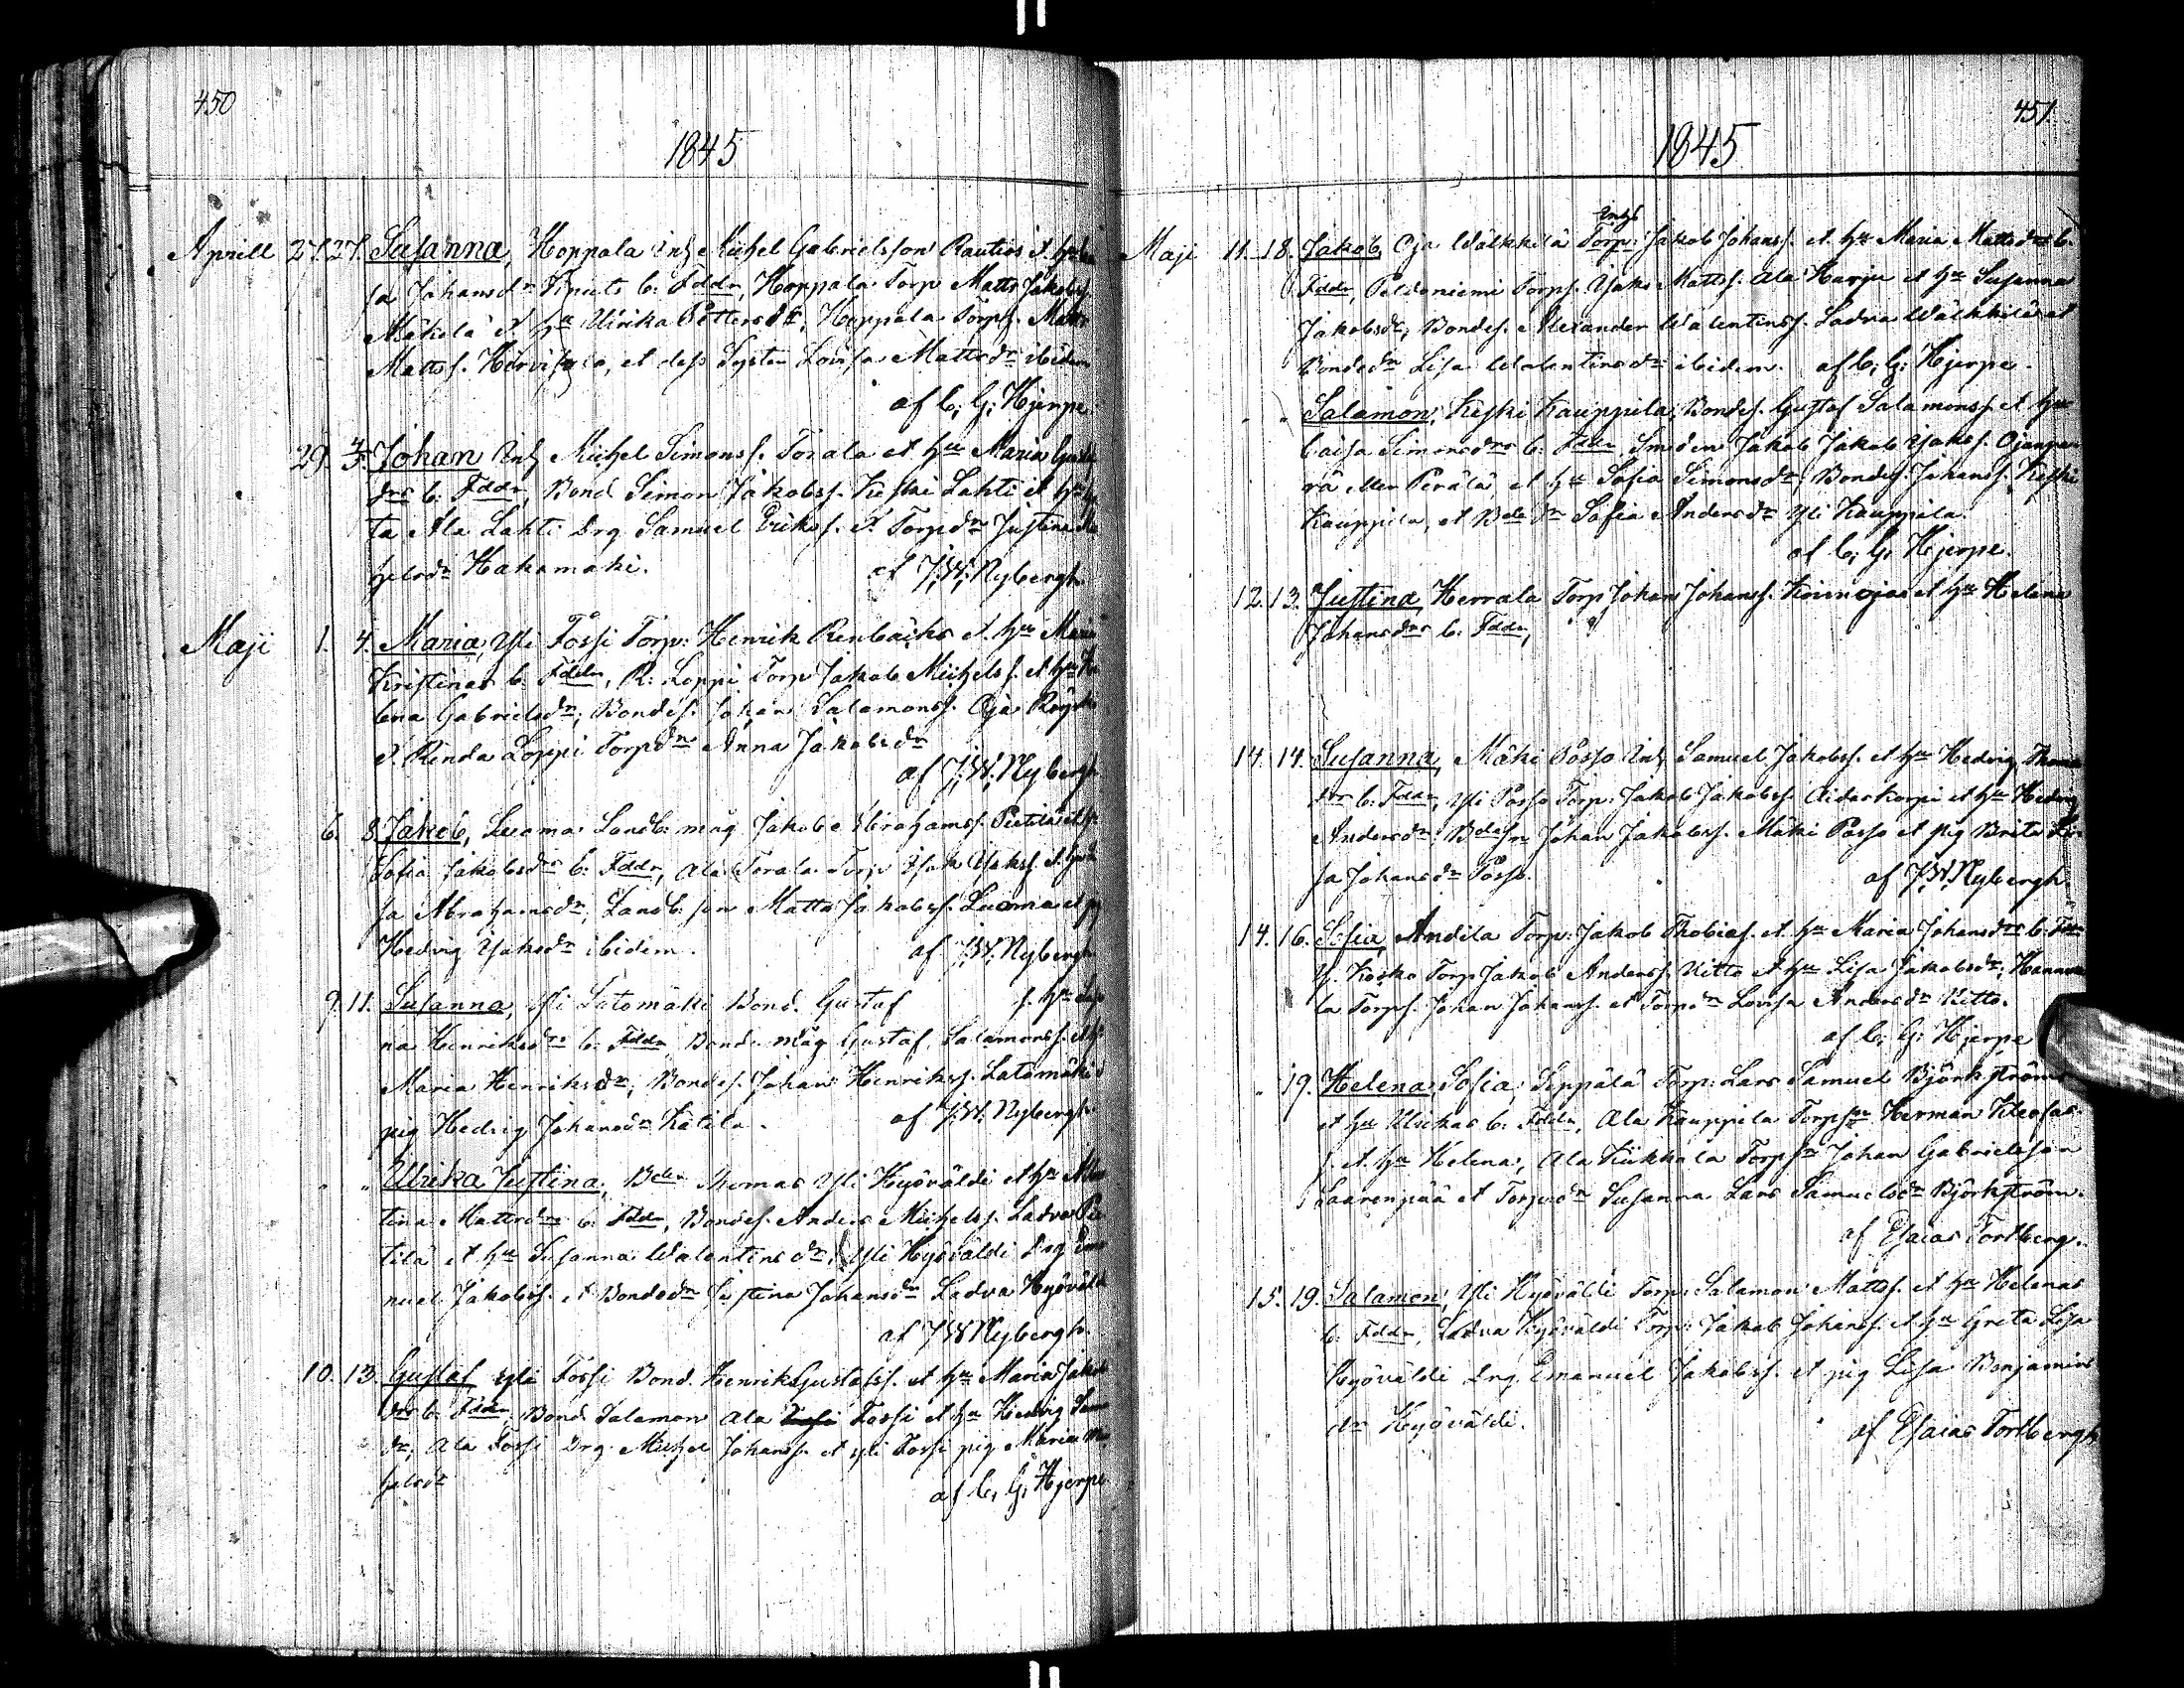 450
1845
Aprill 27. 27. Susanna, Hoppala Inh Michel Gabrielsson Rautios et hu
sa Johansdr Knuts b: Fddr, Hoppala Torp Matts Jakobss.
Mäkelä et hu Ulrika Pettersdr, Hoppala Torps. Matts
Mattss. et dess Syster Lovisa Mattsdr ibidem
af C; G; Hjerpe
29. 4/5. Johan Inh Michel Simonss. Torala et hu Maria
drs b: Fddr, Bond Simon Jakobss. Keski Lahti et hu
ta Ala Lahti Drg Samuel Erikss. et Torpdr Justina
helsdr Hakamäki. af J.W.Nybergh
Maji 1. 4. Maria, Yli Fossi Torp: Henrik Renbäcks et hu Maria
Kristinas b: Fddr, R: Loppi Torp Jakob Michelss. et hu He
lena Gabrielsdr; Bondes. Johan Salamonss. Oja
et Rinda Loppi Torpdr Anna Jakobsdr
af J.W.Nybergh
6. 8. Jakob, Luoma Landb: måg Jakob Abrahamss. Pietilä et
Sofia Jakobsdrs b: Fddr, Ala Torala Torp Isak Isakss. et
sa Abrahamsdr, Landb: son Matts Jakobss. Luoma et pig
Hedvig Isaksdr ibidem. af J.W.Nybergh
9. 11. Susanna, Yli Latomäki Bond. Gustaf s. hu Susa
na Henriksdrs b: Fddr, Bond. måg Gustaf Salamonss. et hu
Maria Henriksdr, Bondes. Johan Henrikss. Latomäki et
pig Hedvig Johansdr Kätilä. af J.W.Nybergh
" " Ulrika Justina, Bdn Thomas Yli Hyöväldi et hu
tina Mattsdrs b: Fddr, Bondes. Anders Michelss. Ladva Pie
tilä et hu Susanna Walentinsdr, Yli Hyöväldi Drg Ema
nuel Jakobss. et Bondedr Justina Johansdr Ladva Hyöväldi
af J.W.Nybergh
10. 13. Gustaf Yli Fossi Bond. Henrik Gustafss. et hu Maria Jakobs
drs b: Fddr, Bond Salamon Ala Fossi et hu Hedvig
dr, Ala Fossi Drg Michel Johanss. et yli Fossi pig Maria Mi
helsdr af C; G; Hjerpe
451.
1845
Inhs
Maji 11. 18. Jakob, Oja Wälkkilä Torp: Jakob Johanss. et hu Maria Mattsdrs b.
Fddr, Peldoniemi Torps. Isak Mattss. Ala Harju et hu Susanna
Jakobsdr; Bondes. Alexander Walentinss. Ladva Wälkkilä et
Bondedr Lisa Walentinsdr ibidem. af C; G; Hjerpe.
" " Salamon, Keski Kauppila, Bondes. Gustaf Salamonss. et hu
Caisa Simonsdrs b: Fddr Smeden Jakob Jakob Isakss. Ojanpe
rä eller Perälä, et hu Sofia Simonsdr, Bondes. Johanss. Keski
Kauppila, et Bde dr Sofia Andersdr Yli Kauppila.
af C; G; Hjerpe.
12. 13. Justina, Herrala Torp Johan Johanss. Koivuojas et hu Helena
Johansdrs b: Fddr,
14. 14. Susanna, Mäki Passo Inh Samuel Jakobss. et hu Hedvig Thomas
drs b: Fddr, Yli Passo Torp: Jakob Jakobss. Aidaskorpi et hu Hedvig
Andersdr; Bdesn Johan Jakobss. Mäki Passo et pig Brita Li
sa Johansdr Passo. af J.W.Nybergh.
14. 16. Sofia, Andila Torp: Jakob Thobias. et hu Maria Johansdrs b: Fddr
Y. Kosko Torp Jakob Anderss. Uitto et hu Lisa Jakobsdr; Hannu
la Torps. Johan Johanss. et Torpdr Lovisa Andersdr Uitto.
af C; G; Hjerpe
" 19. Helena Sofia, Seppälä Torp: Lars Samuel Björkströms
et hu Ulrikas b: Fddr, Ala Kauppila Torpsn Herman Kleofas
s. et hu Helena, Ala Kiikkala Torpsn Johan Gabrielsson
Saarenpää et Torpdr Susanna Lars Samuelsdr Björkström.
af Esaias Torlberg.
15. 19. Salamon, Yli Hyöväldi Torp: Salamon Mattss. et hu Helenas
b: Fddr, Ladva Hyöväldi Torp: Jakob Johanss. et hu Greta Lisa
Hyöväldi Drg Emanuel Jakobss. et pig Lisa Benjamins
dr Hyöväldi. af Esaias Torlbergh